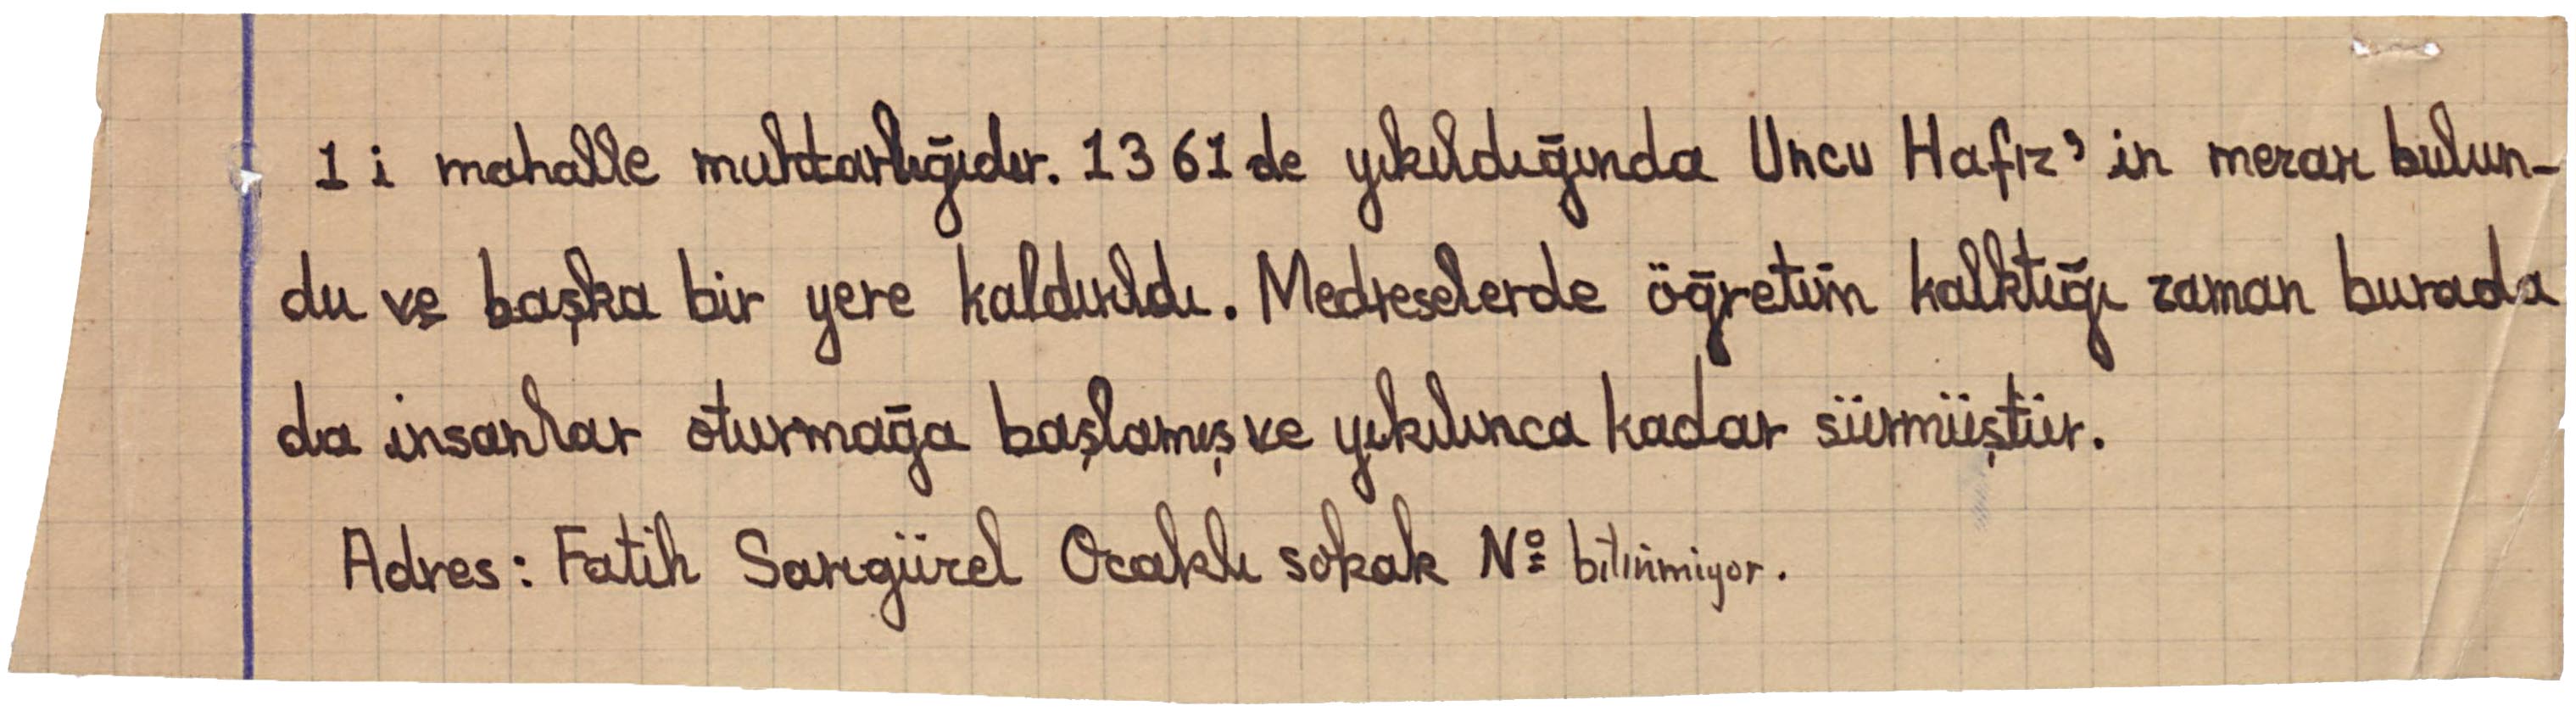 1 i mahalle muhtarlığıdır. 1361 de yıkıldığında Uncu Hafız'ın mezarı bulun-
du ve başka bir yere kaldırıldı. Medreselerde öğretim kalktığı zaman burada
da insanlar oturmağa başlamış ve yıkılınca kadar sürmüştür.
Adres: Fatih Sarıgüzel Ocaklı sokak Nº bilinmiyor.